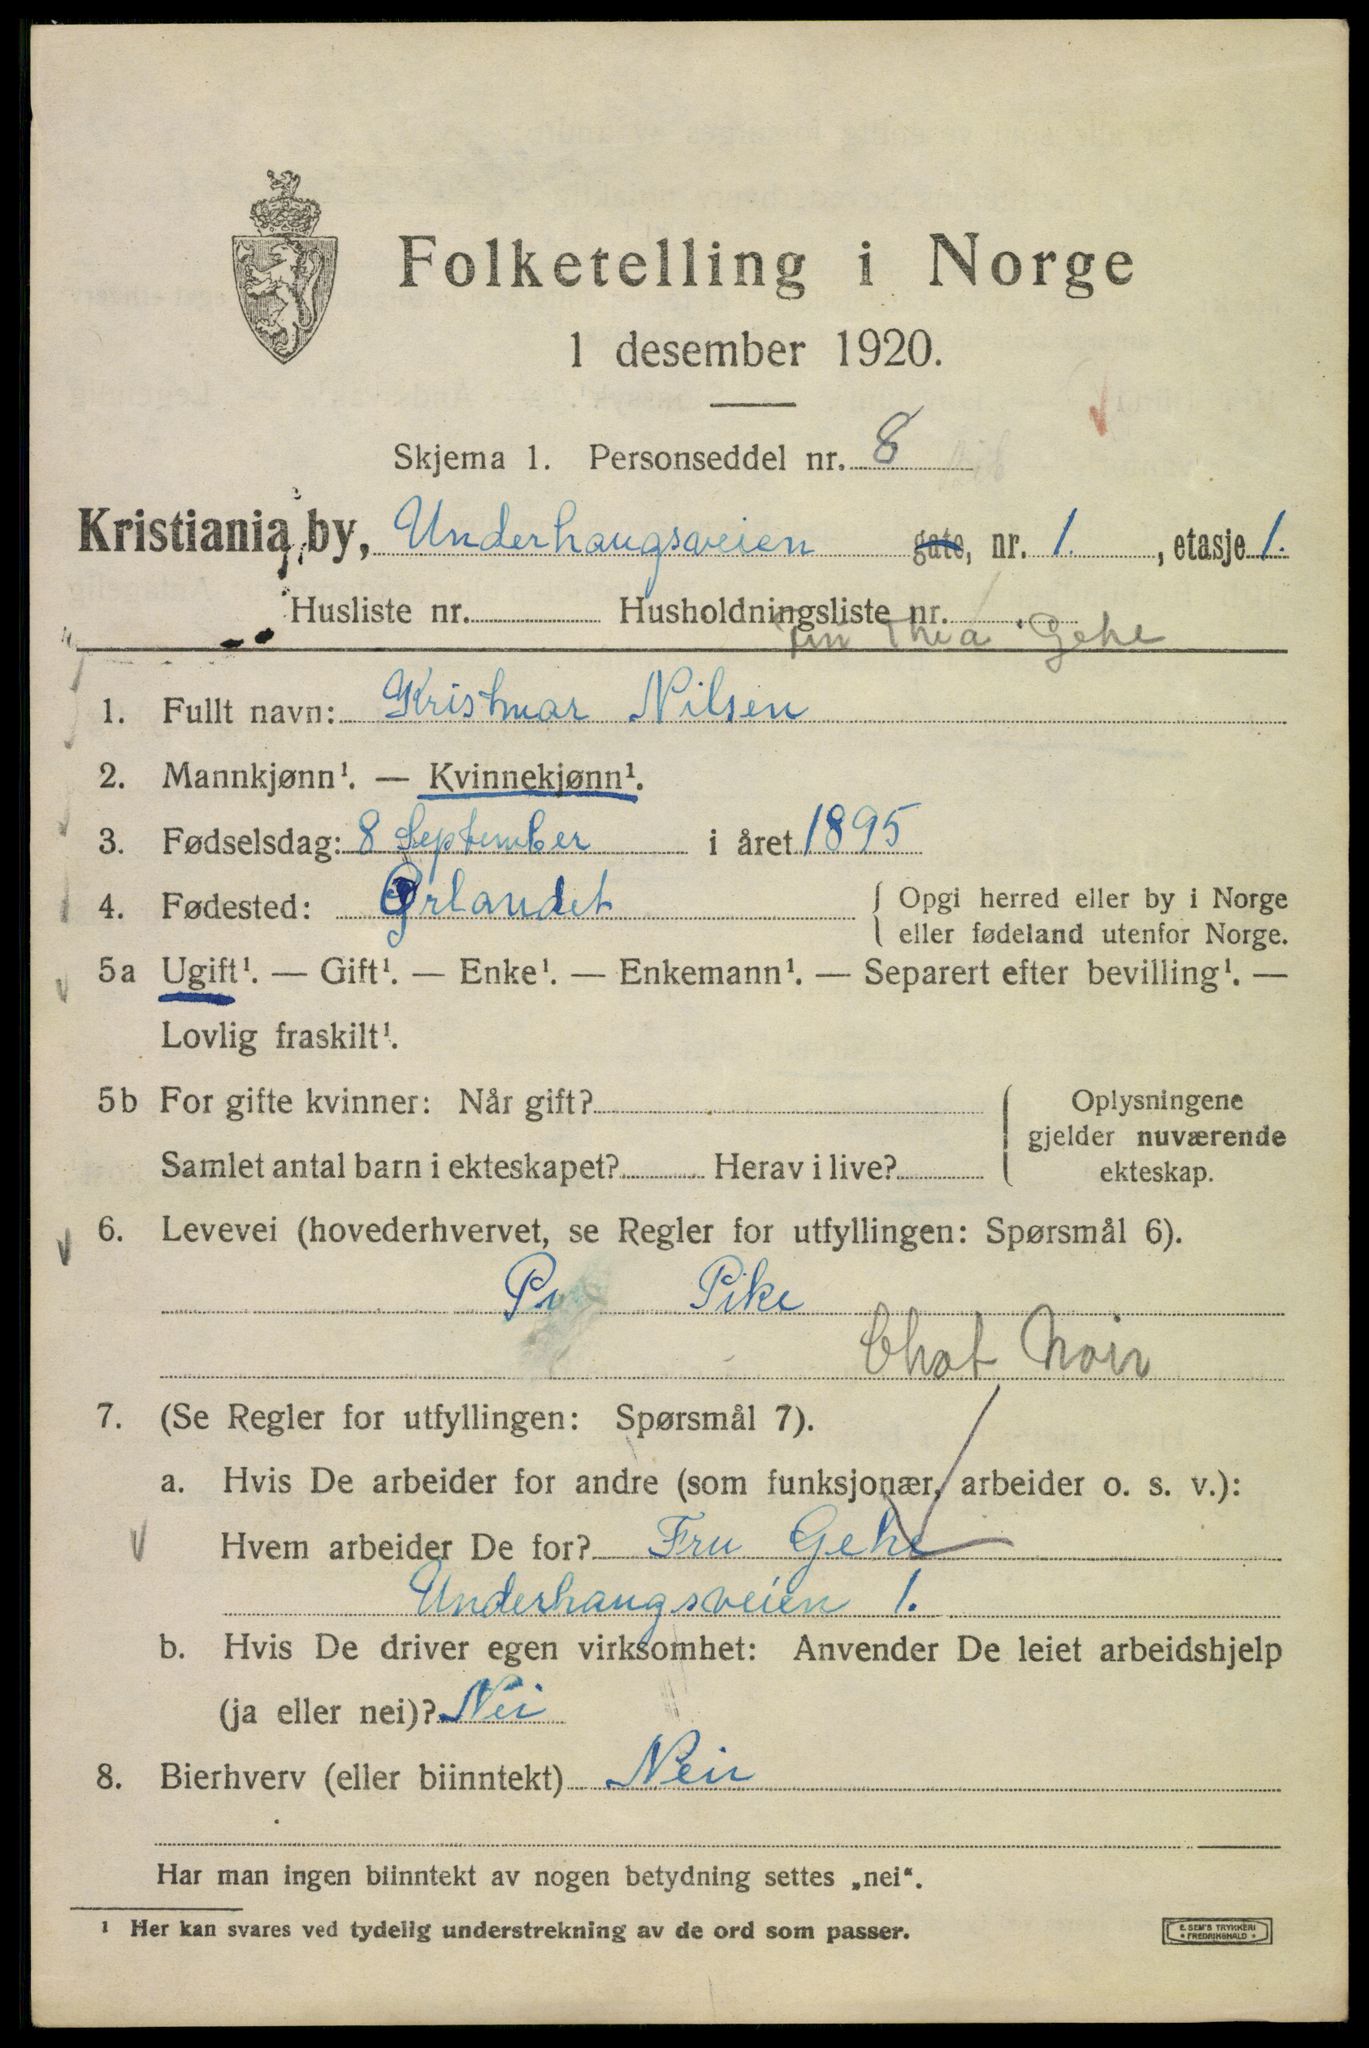 Folketelling i Norge
1 desember 1920.
Skjema 1. Personseddel nr. 8
Kristiania by, Underhaugsveien gate, nr. 1. , etasje 1.
Husliste nr. Husholdningsliste nr.
Thea Gehe
1. Fullt navn: Kristmar Nilsen
2. Mannkjønn¹. — Kvinnekjønn¹.
3. Fødselsdag: 8 September i året 1895
4. Fødested: Ørlandet { Opgi herred eller by i Norge
eller fødeland utenfor Norge.
5a Ugift¹. — Gift¹. — Enke¹. — Enkemann¹. — Separert efter bevilling¹. —
Lovlig fraskilt¹.
5b For gifte kvinner: Når gift? { Oplysningene
gjelder nuværende
Samlet antal barn i ekteskapet? Herav i live? ekteskap.
6. Levevei (hovederhvervet, se Regler for utfyllingen: Spørsmål 6).
Pike
Chat Noir
7. (Se Regler for utfyllingen: Spørsmål 7).
a. Hvis De arbeider for andre (som funksjonær, arbeider o. s. v.):
Hvem arbeider De for? Fru Gehe
Underhaugsveien 1.
b. Hvis De driver egen virksomhet: Anvender De leiet arbeidshjelp
(ja eller nei)? Nei
8. Bierhverv (eller biinntekt) Nei
Har man ingen biinntekt av nogen betydning settes „nei“.
¹ Her kan svares ved tydelig understrekning av de ord som passer.
E. SEM'S TRYKKERI
• FREDRIKSHALD •